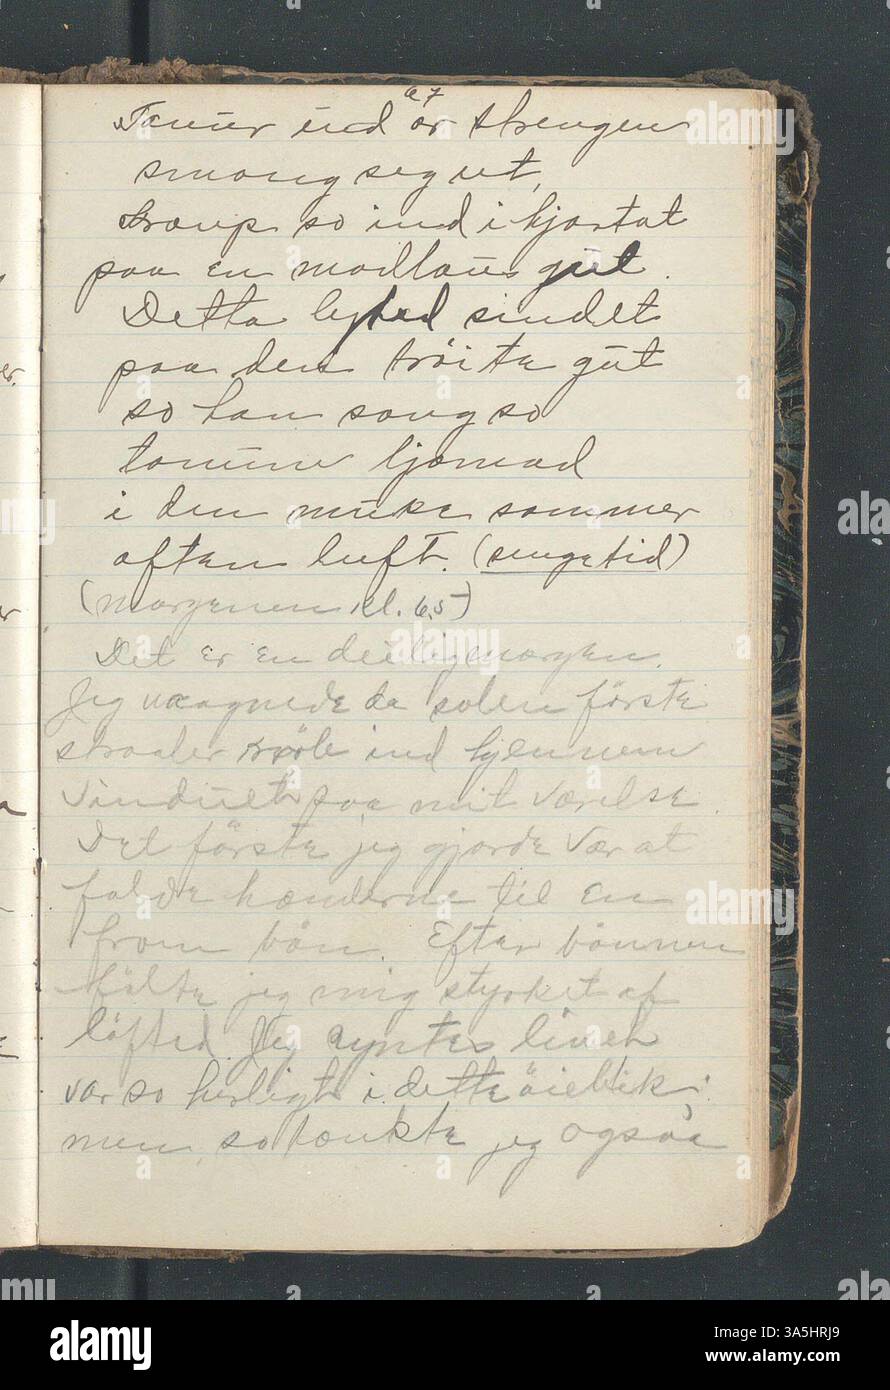 Tauur ud ör strengen
af
smaug seg ut,
so ind i hjartat
paa en modlaus gut.
Detta lyted sindet
paa den tröite gut
so han saug so
ljomad
i den muke sommer
aften luft. (sengetid)
(morgenen kl. 6,5)
Det er en deiligmorgen.
Jeg vaagnede da solen förste
straaler ind hjennem
Vinduet paa mit Værelse.
Det förste jeg gjorde Var at
folde hænderne til en
from bön. Efter bönnen
fölte jeg mig styrket af
löfted. Jeg syntes livet
var so herligt i dette öieblik;
men, so tænkte jeg ogsaa
er.
er
alamy
Image ID: 3A5HRJ9
www.alamy.com